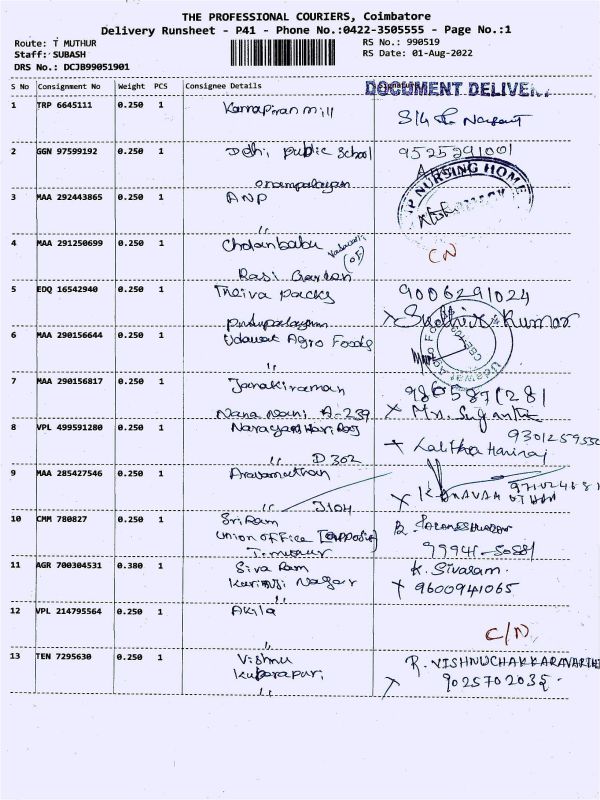 THE PROFESSIONAL COURIERS, Coimbatore
Delivery Runsheet - P41 - Phone No.:0422-3505555 - Page No.:1
Route: T MUTHUR
RS No.: 990519
Staff: SUBASH
RS Date: 01-Aug-2022
DRS No.: DCJB99051901
S No Consignment No Weight PCS Consignee Details
DOCUMENT DELIVE
1 TRP 6645111 0.250 1 Kannapiran mill
2 GGN 97599192 0.250 1 Delhi public school 9525291001
onampalayam
NURSING HOME
3 MAA 292443865 0.250 1 ANP
"
4 MAA 291250699 0.250 1 Cholanbabu
CN
Rasi Garden
5 EDQ 16542940 0.250 1 Theiva packs 9006291024
Pudupalayam Sudhir Kumar
6 MAA 290156644 0.250 1 Udawat Agro Foods
"
7 MAA 290156817 0.250 1 Janakiraman
Nana Nani A-239
8 VPL 499591280 0.250 1 Narayan Hari Raj
" D 302 Lalitha Hariraj
9 MAA 285427546 0.250 1
" J104
10 CMM 780827 0.250 1 Sri Ram
Union office [opposite]
T. mutur 99941-50881
11 AGR 700304531 0.380 1 Siva Ram K. Sivaram
Nagar 9600941065
"
12 VPL 214795564 0.250 1 Akila
C/N
"
13 TEN 7295630 0.250 1 Vishnu R. VISHNUCHAKKARAVARTHI
9025702035
"